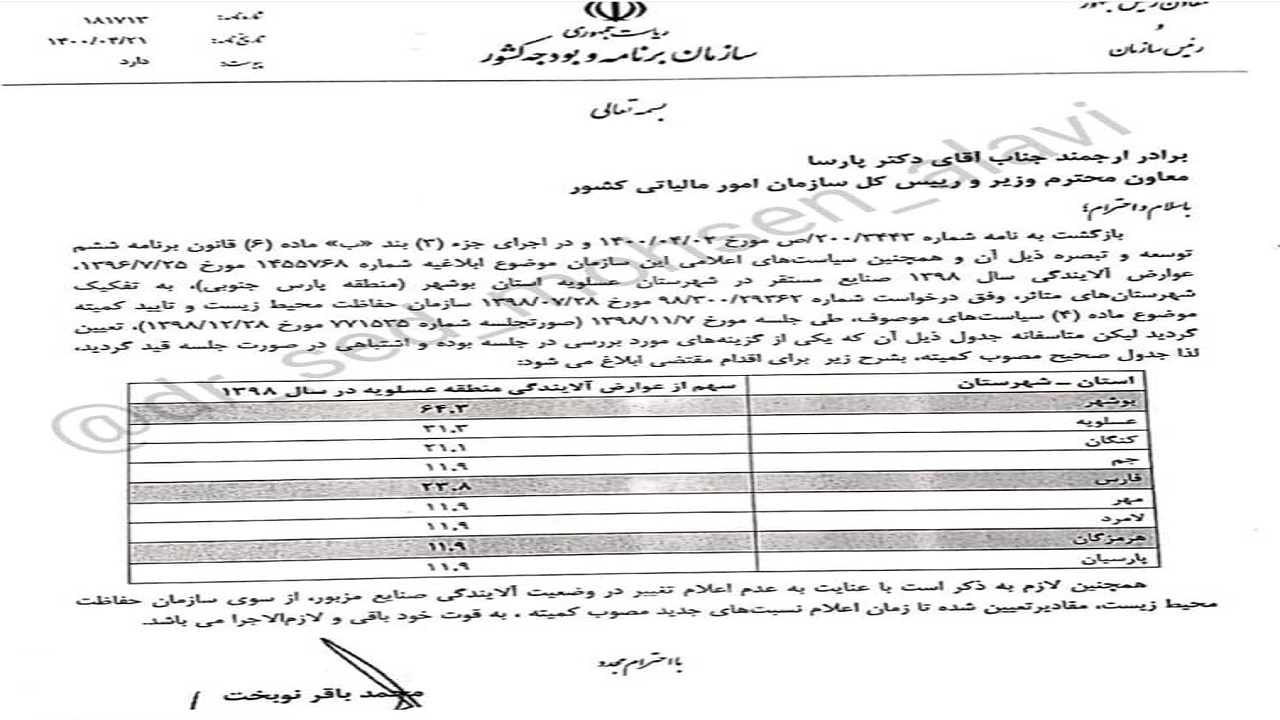 ریاست جمهوری
سازمان برنامه و بودجه کشور
معاون رئیس جمهور
و
رئیس سازمان
شماره نامه: ۱۸۱۷۱۳
تاریخ نامه: ۱۴۰۰/۰۴/۲۱
پیوست: دارد
بسمه تعالی
برادر ارجمند جناب آقای دکتر پارسا
معاون محترم وزیر و رییس کل سازمان امور مالیاتی کشور
باسلام و احترام؛
بازگشت به نامه شماره ۲۰۰/۳۴۴۳/ص مورخ ۱۴۰۰/۰۴/۰۲ و در اجرای جزء (۳) بند «ب» ماده (۶) قانون برنامه ششم
توسعه و تبصره ذیل آن و همچنین سیاست‌های اعلامی این سازمان موضوع ابلاغیه شماره ۱۴۵۵۷۶۸ مورخ ۱۳۹۶/۷/۲۵،
عوارض آلایندگی سال ۱۳۹۸ صنایع مستقر در شهرستان عسلویه استان بوشهر (منطقه پارس جنوبی)، به تفکیک
شهرستان‌های متاثر، وفق درخواست شماره ۹۸/۳۰۰/۲۹۳۶۲ مورخ ۱۳۹۸/۰۷/۲۸ سازمان حفاظت محیط زیست و تایید کمیته
موضوع ماده (۴) سیاست‌های موصوف، طی جلسه مورخ ۱۳۹۸/۱۱/۷ (صورتجلسه شماره ۷۷۱۵۲۵ مورخ ۱۳۹۸/۱۲/۲۸)، تعیین
گردید لیکن متاسفانه جدول ذیل آن که یکی از گزینه‌های مورد بررسی در جلسه بوده و اشتباهی در صورت جلسه قید گردید،
لذا جدول صحیح مصوب کمیته، بشرح زیر برای اقدام مقتضی ابلاغ می شود:
استان – شهرستان سهم از عوارض آلایندگی منطقه عسلویه در سال ۱۳۹۸
بوشهر ۶۴.۳
عسلویه ۳۱.۳
کنگان ۲۱.۱
جم ۱۱.۹
فارس ۲۳.۸
مهر ۱۱.۹
لامرد ۱۱.۹
هرمزگان ۱۱.۹
پارسیان ۱۱.۹
همچنین لازم به ذکر است با عنایت به عدم اعلام تغییر در وضعیت آلایندگی صنایع مزبور، از سوی سازمان حفاظت
محیط زیست، مقادیر تعیین شده تا زمان اعلام نسبت‌های جدید مصوب کمیته ، به قوت خود باقی و لازم‌الاجرا می باشد.
با احترام مجدد
محمد باقر نوبخت
@dr_sed_mohsen_alavi